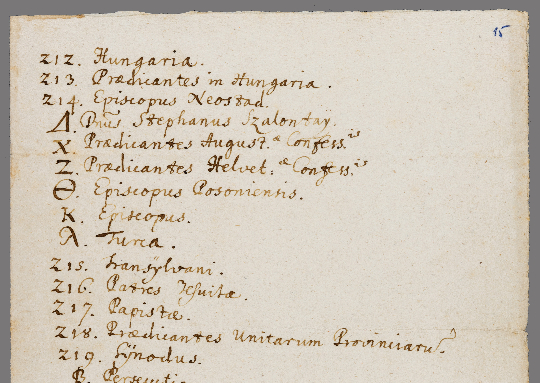 15
212. Hungaria.
213. Prædicantes in Hungaria.
214. Episcopus Neostad.
Δ. Dnus Stephanus Szalontaÿ.
X. Prædicantes August.æ Confess.is
Z. Prædicantes Helvet.æ Confess.is
Θ. Episcopus Posoniensis.
K. Episcopus.
λ. Turca.
215. Transÿlvani.
216. Patres Jesuitæ.
217. Papistæ.
218. Prædicantes Unitarum Provinciaru.
219. Sÿnodus.